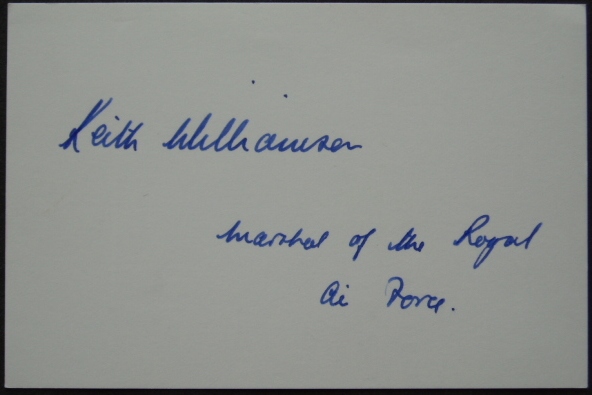 Keith Williamson
Marshal of the Royal
Air Force.